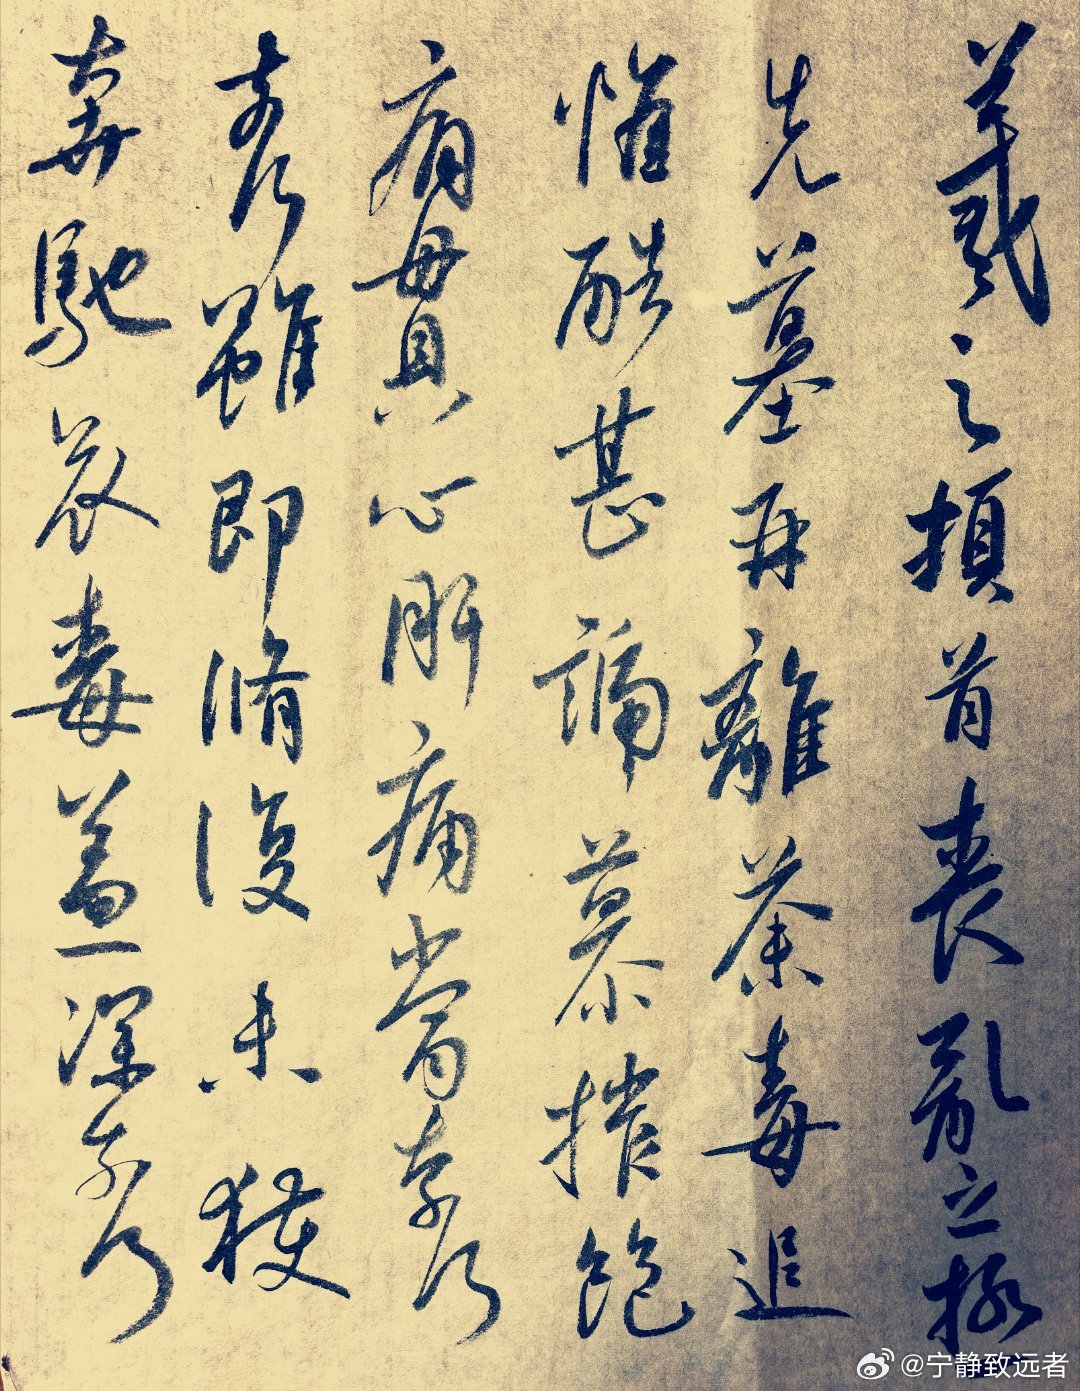 羲之頓首喪亂之極
先墓再離荼毒追
惟酷甚號慕摧絕
痛貫心肝痛當奈何
奈何雖即脩復未獲
奔馳哀毒益深奈何
@宁静致远者